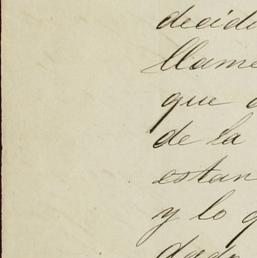 decido
llame
que
de la
estan
y lo q
dado